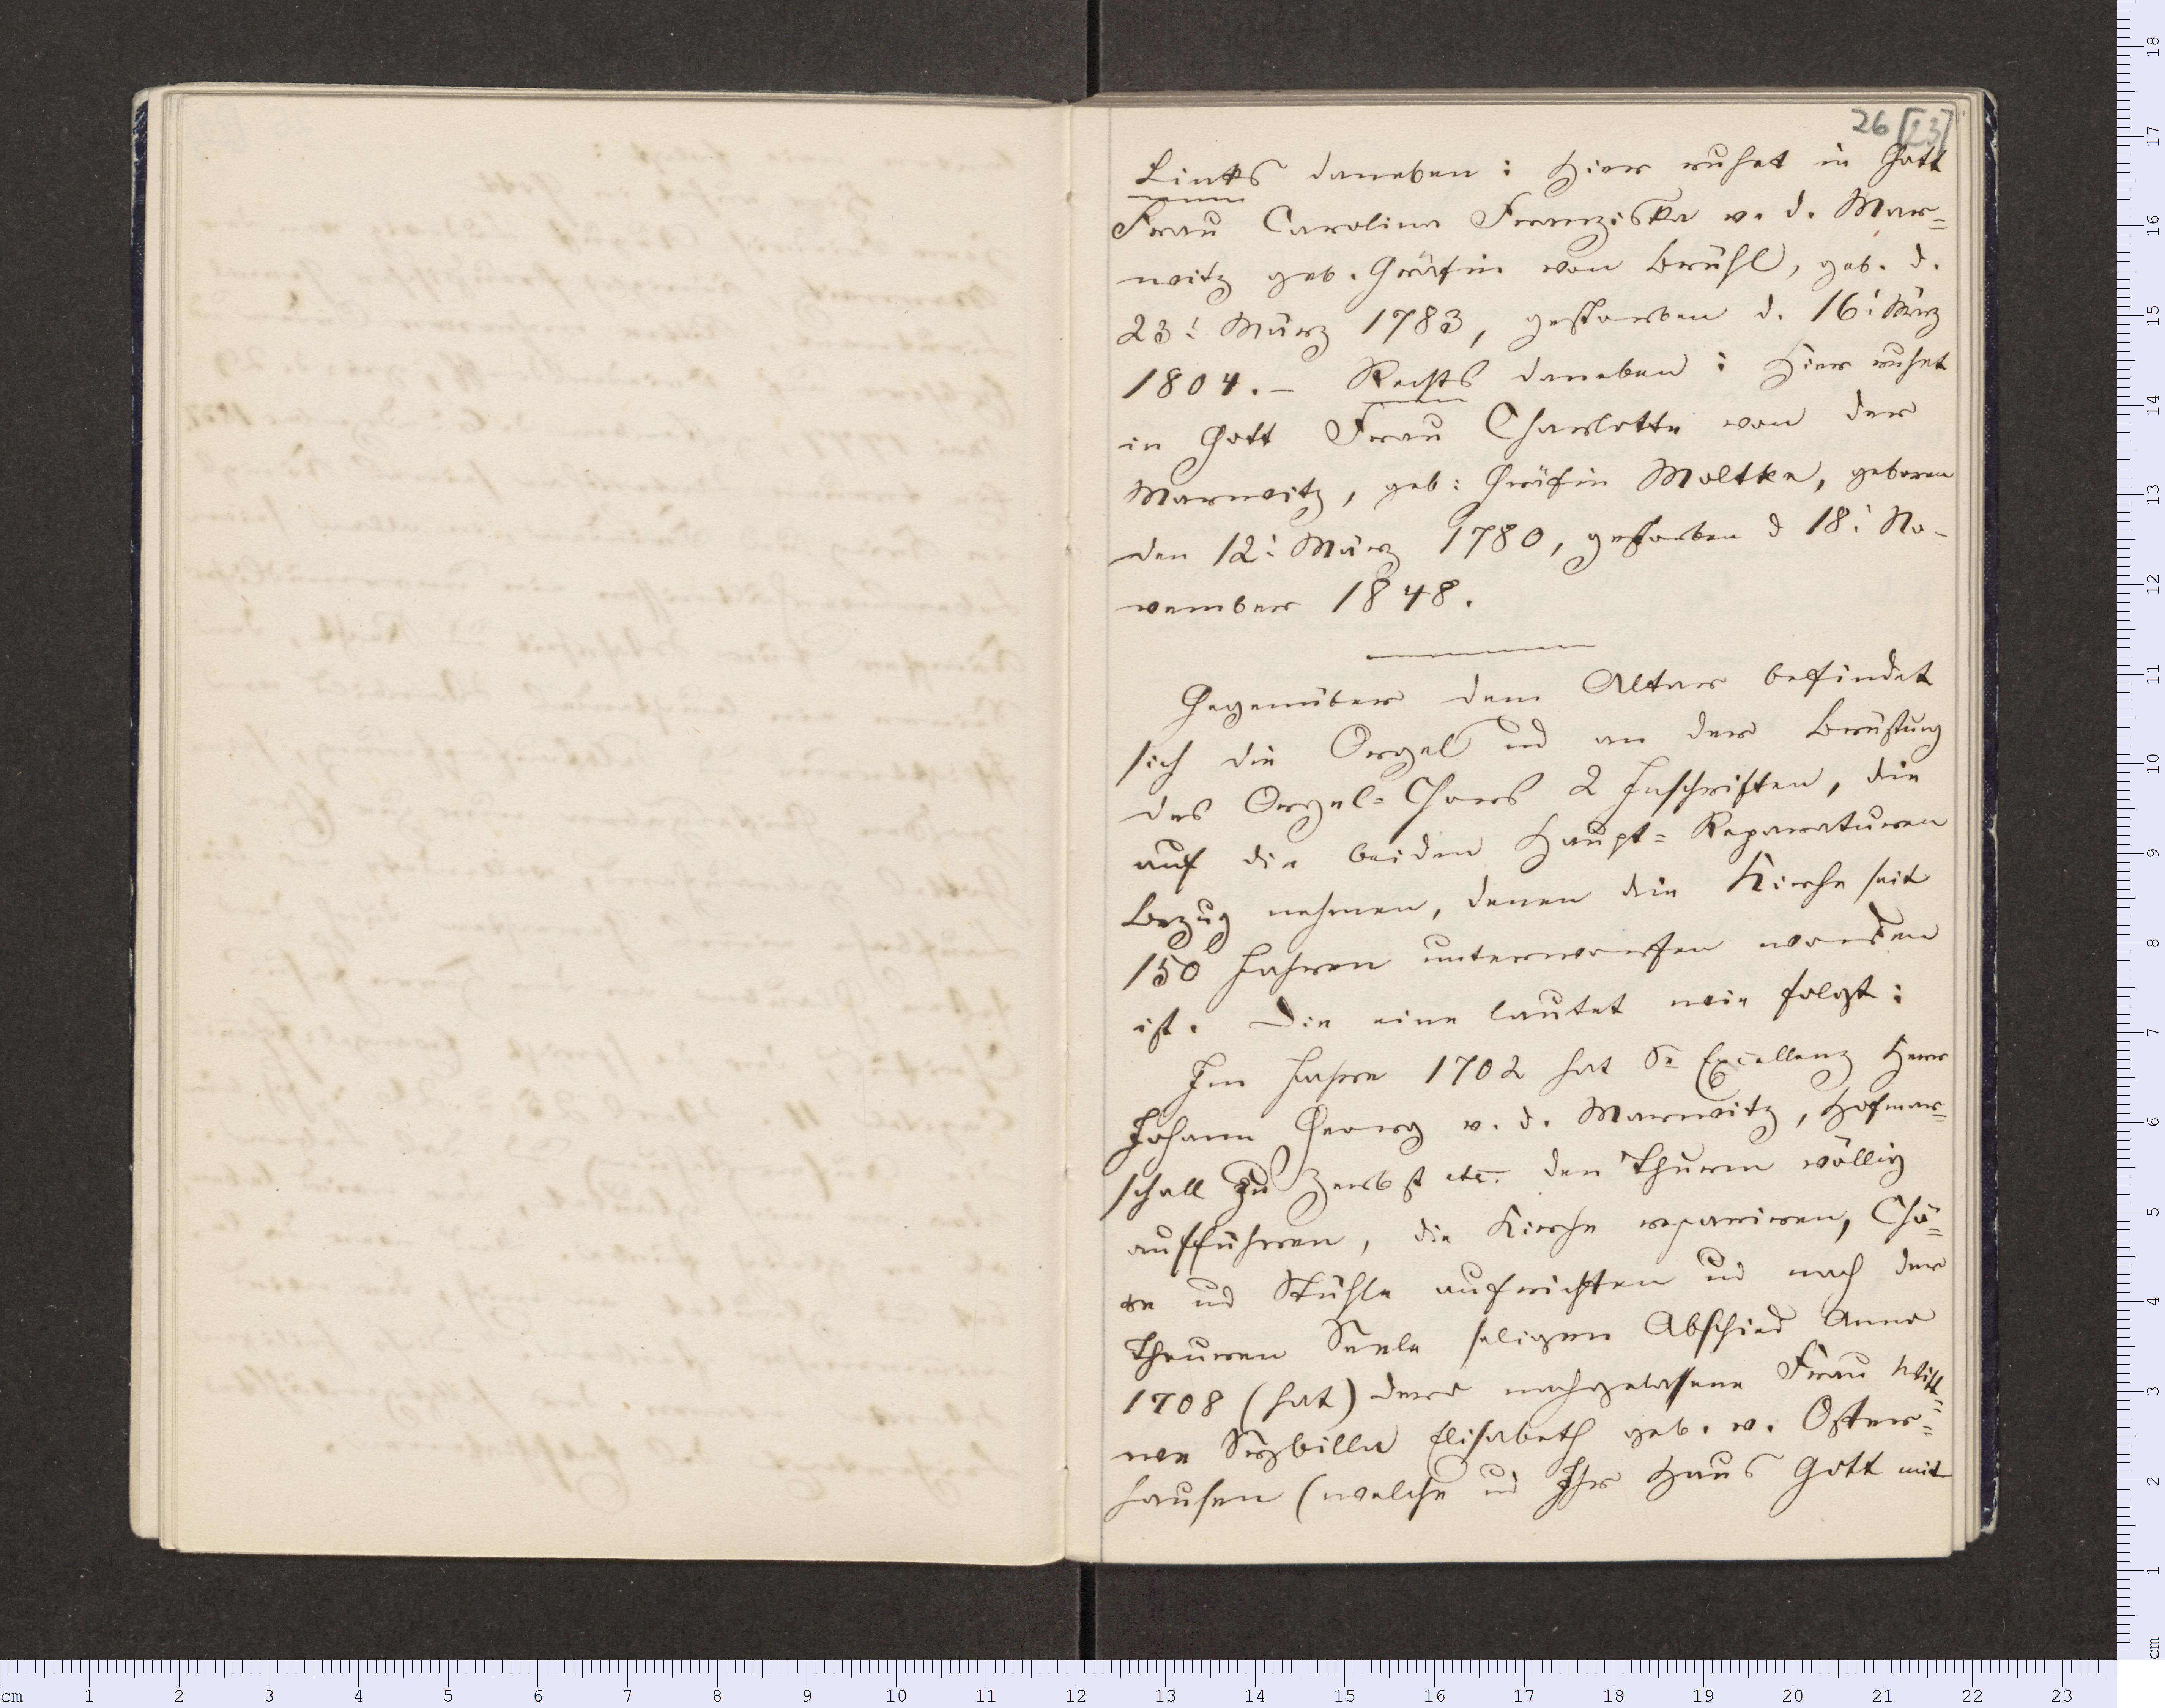 26 [23]
Links daneben: Hier ruhet in Gott
Frau Caroline Franziska v. d. Mar=
witz geb. Gräfin von Brühl, geb. d.
23: März 1783, gestorben d. 16: März
1804. – Rechts daneben: Hier ruhet
in Gott Frau Charlotte von der
Marwitz, geb: Gräfin Moltke, geboren
den 12: März 1780, gestorben d 18: No-
vember 1848.
Gegenüber dem Altar befindet
sich die Orgel ud an der Brüstung
des Orgel=Chors 2 Inschriften, die
auf die beiden Haupt=Reparaturen
Bezug nehmen, denen die Kirche seit
150 Jahren unterworfen worden
ist. Die eine lautet wie folgt:
Im Jahre 1702 hat Se Excellenz Herr
Johann Georg v. d. Marwitz, Hofmar=
schall zu Zerbst etc. den Thurm völlig
aufführen, die Kirche repariren, Chö=
re ud Stühle aufrichten ud nach der
Theuren Seele seligen Abschied Anno
1708 (hat) dero nachgelassene Frau Witt=
we Sybilla Elisabeth geb. v. Oster=
hausen (welche ud Ihr Haus Gott mit